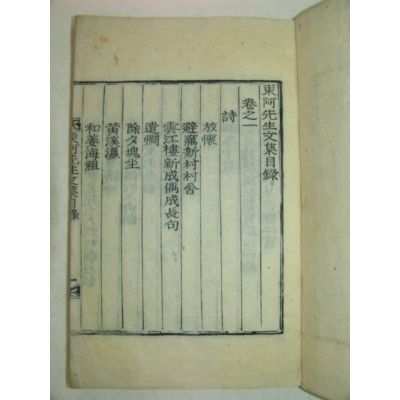 東阿先生文集目錄
卷之一
詩
放懷
避癘新村村舍
雲江樓新成偶成長句
遣憫
除夕塊坐
苗溪瀑
和姜海祖
東阿先生文集目錄